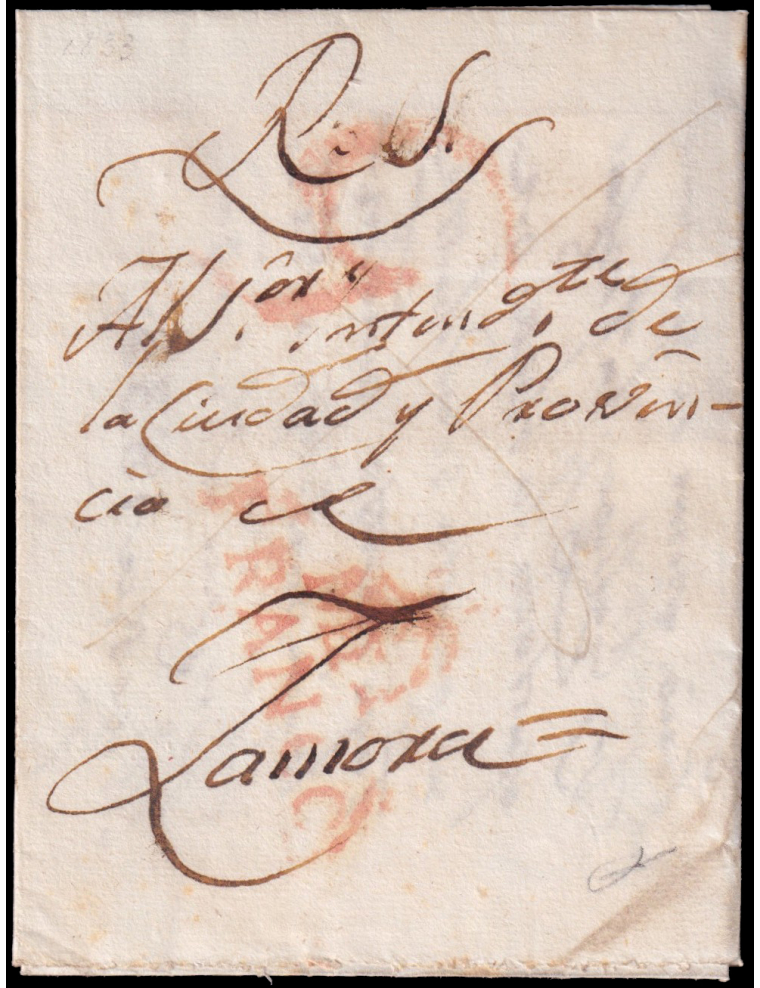 1833
R. S.
Al S.or Yntend.te de
la Ciudad y Provin-
cia de
Zamora =
FRANCO